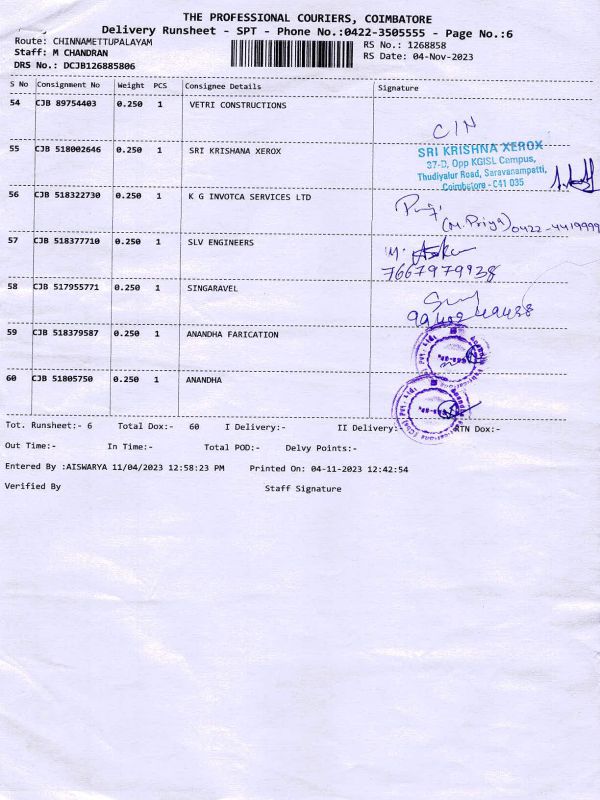 THE PROFESSIONAL COURIERS, COIMBATORE
Delivery Runsheet - SPT - Phone No.:0422-3505555 - Page No.:6
Route: CHINNAMETTUPALAYAM RS No.: 1268858
Staff: M CHANDRAN RS Date: 04-Nov-2023
DRS No.: DCJB126885806
S No Consignment No Weight PCS Consignee Details Signature
54 CJB 89754403 0.250 1 VETRI CONSTRUCTIONS
CIN
55 CJB 518002646 0.250 1 SRI KRISHANA XEROX
SRI KRISHNA XEROX
37-D, Opp KGISL Campus,
Thudiyalur Road, Saravanampatti,
Coimbatore - 641 035
56 CJB 518322730 0.250 1 K G INVOTCA SERVICES LTD
(M. Priya) 0422-4419999
57 CJB 518377710 0.250 1 SLV ENGINEERS
7667979938
58 CJB 517955771 0.250 1 SINGARAVEL
59 CJB 518379587 0.250 1 ANANDHA FARICATION
60 CJB 51805750 0.250 1 ANANDHA
Tot. Runsheet:- 6 Total Dox:- 60 I Delivery:- II Delivery:- RTN Dox:-
Out Time:- In Time:- Total POD:- Delvy Points:-
Entered By :AISWARYA 11/04/2023 12:58:23 PM Printed On: 04-11-2023 12:42:54
Verified By Staff Signature